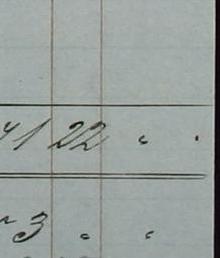 41 22 "
3 " "